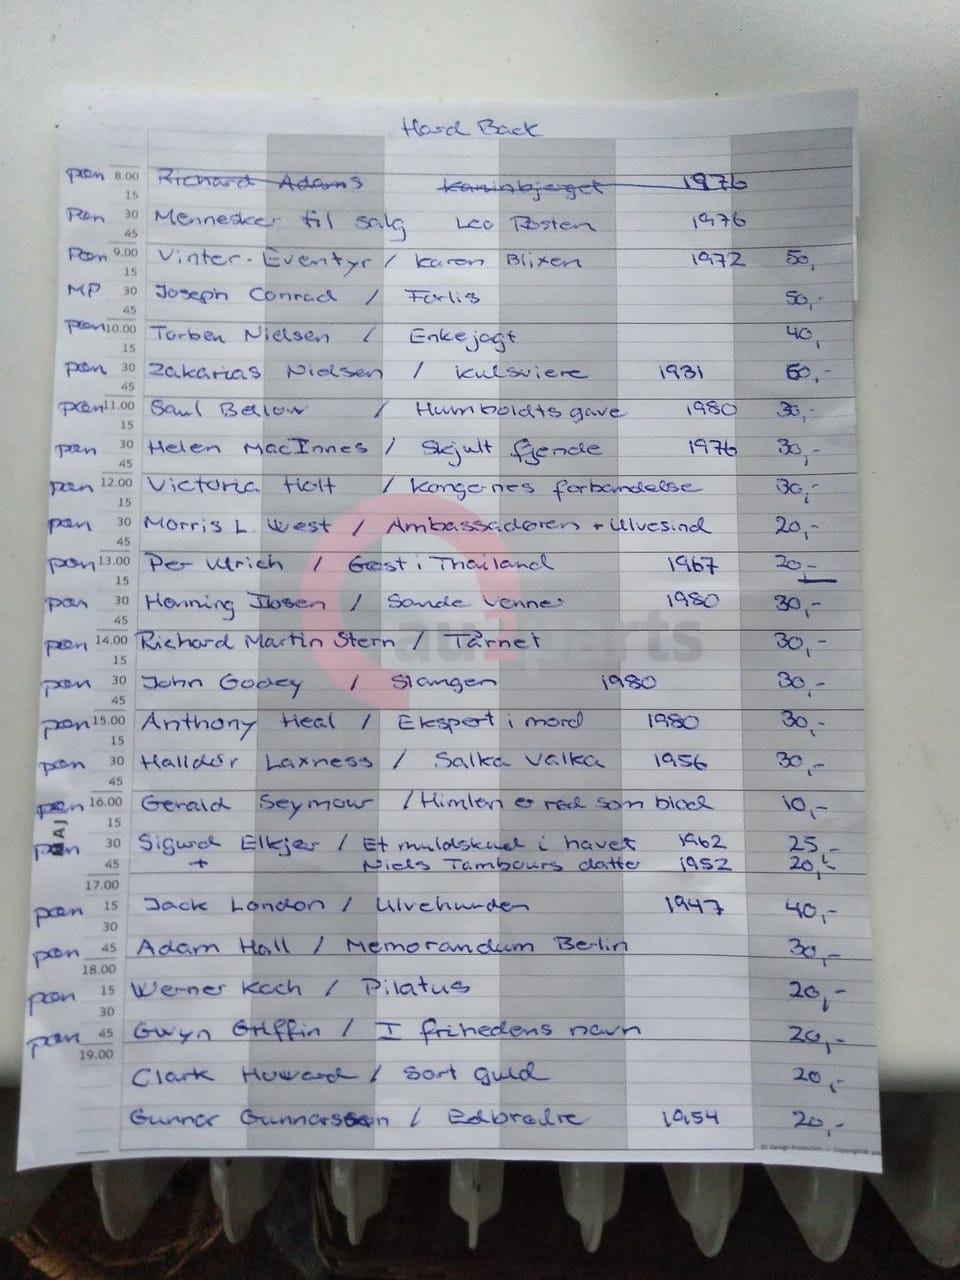 Hard Back
pæn 8.00 Richard Adams Kaninbjerget 1976
15
Pæn 30 Mennesker til salg Leo Rosten 1976
45
Pæn 9.00 Vinter-Eventyr / Karen Blixen 1972 50,-
15
MP 30 Joseph Conrad / Forlis 50,-
45
pæn 10.00 Torben Nielsen / Enkejagt 40,
15
pæn 30 Zakarias Nielsen / Kulsviere 1931 60,-
45
pæn 11.00 Saul Bellow / Humboldts gave 1980 30,-
15
pæn 30 Helen MacInnes / Skjult fjende 1976 30,-
45
pæn 12.00 Victoria Holt / Kongernes forbandelse 30,-
15
pæn 30 Morris L. West / Ambassadøren + Ulvesind 20,-
45
pæn 13.00 Per Ulrich / Gæst i Thailand 1967 20,-
15
pæn 30 Henning Ibsen / Sande venner 1980 30,-
45
pæn 14.00 Richard Martin Stern / Tårnet 30,-
15
pæn 30 John Godey / Slangen 1980 30,-
45
pæn 15.00 Anthony Heal / Ekspert i mord 1980 30,-
15
pæn 30 Halldór Laxness / Salka Valka 1956 30,-
45
pæn 16.00 Gerald Seymour / Himlen er rød som blod 10,-
15
MAJ
pæn 30 Sigurd Elkjær / Et muldskud i havet 1962 25,-
45 + Niels Tambours datter 1952 20,-
17.00
pæn 15 Jack London / Ulvehunden 1947 40,-
30
pæn 45 Adam Hall / Memorandum Berlin 30,-
18.00
pæn 15 Werner Koch / Pilatus 20,-
30
pæn 45 Gwyn Griffin / I frihedens navn 20,-
19.00
Clark Howard / Sort guld 20,-
Gunnar Gunnarsson / Edbrødre 1954 20,-
autparts